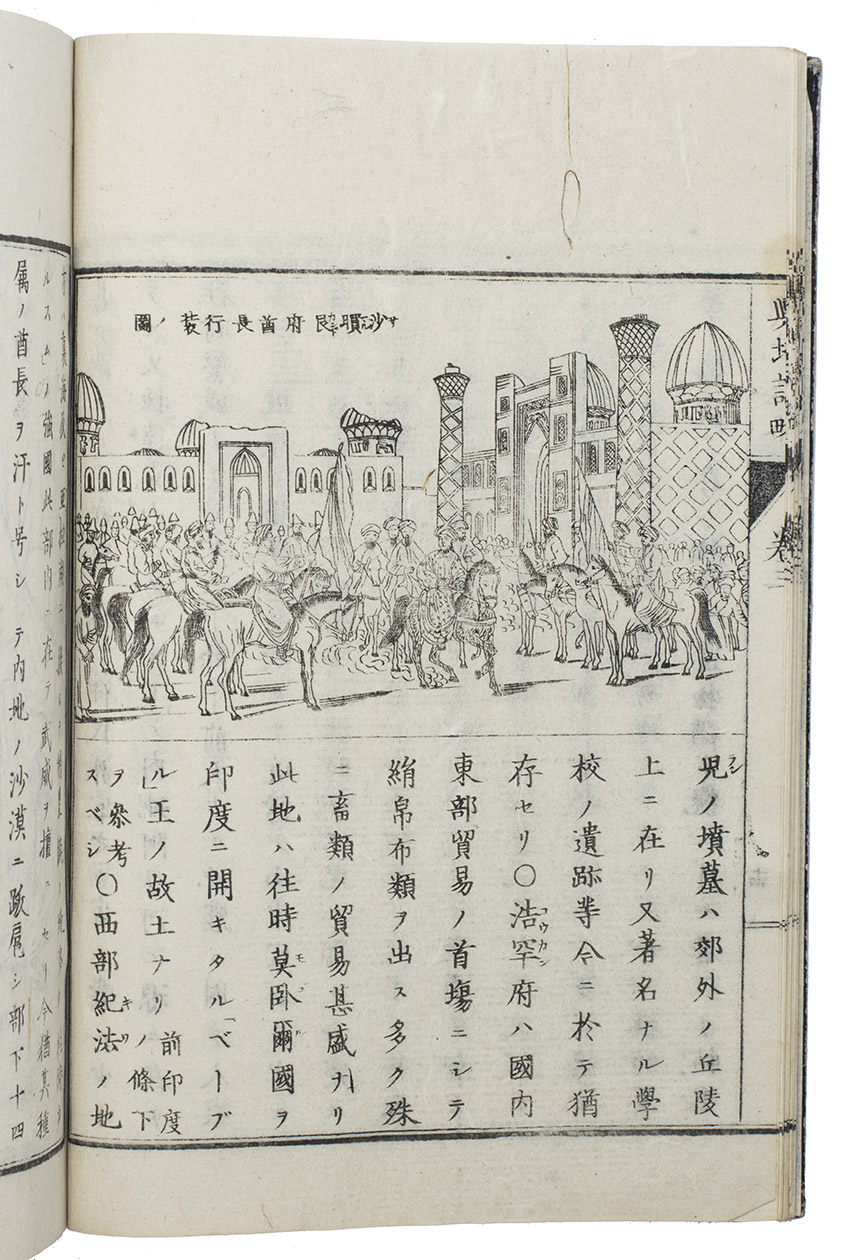 輿地誌略 巻三
沙府酋長行装ノ圖
児ノ墳墓ハ郊外ノ丘陵
上ニ在リ又著名ナル學
校ノ遺跡等今ニ於テ猶
存セリ〇浩罕府ハ國内
東部貿易ノ首塲ニシテ
絹帛布類ヲ出ス多ク殊
ニ畜類ノ貿易甚盛ナリ
此地ハ往時莫卧爾國ヲ
印度ニ開キタル「ベーブ
ル」王ノ故土ナリ前印度ノ條下
ヲ参考スベシ〇西部紀法ノ地
ルスム」ノ強國此部内ニ在テ武威ヲ擅ニセリ今猶其種
属ノ酋長ヲ汗ト号シテ内地ノ沙漠ニ跋扈シ部下十四